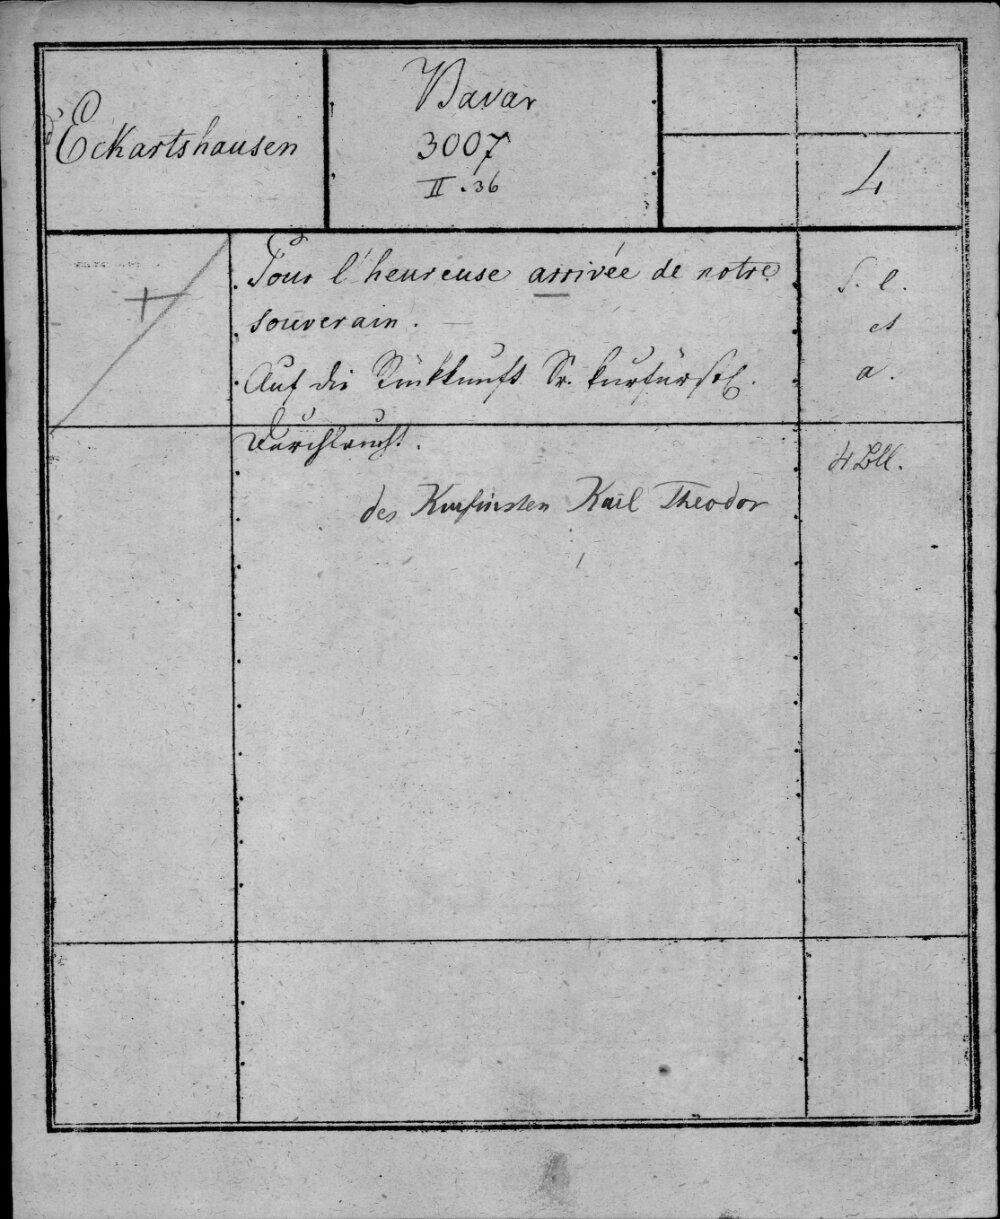 d'Eckartshausen
Bavar
3007
II. 36
4
Pour l'heureuse arrivée de notre
souverain.
Auf die Rückkunft Sr. kurfürstl.
Durchlaucht.
des Kurfürsten Karl Theodor
S. l.
et
a.
4 Bll.